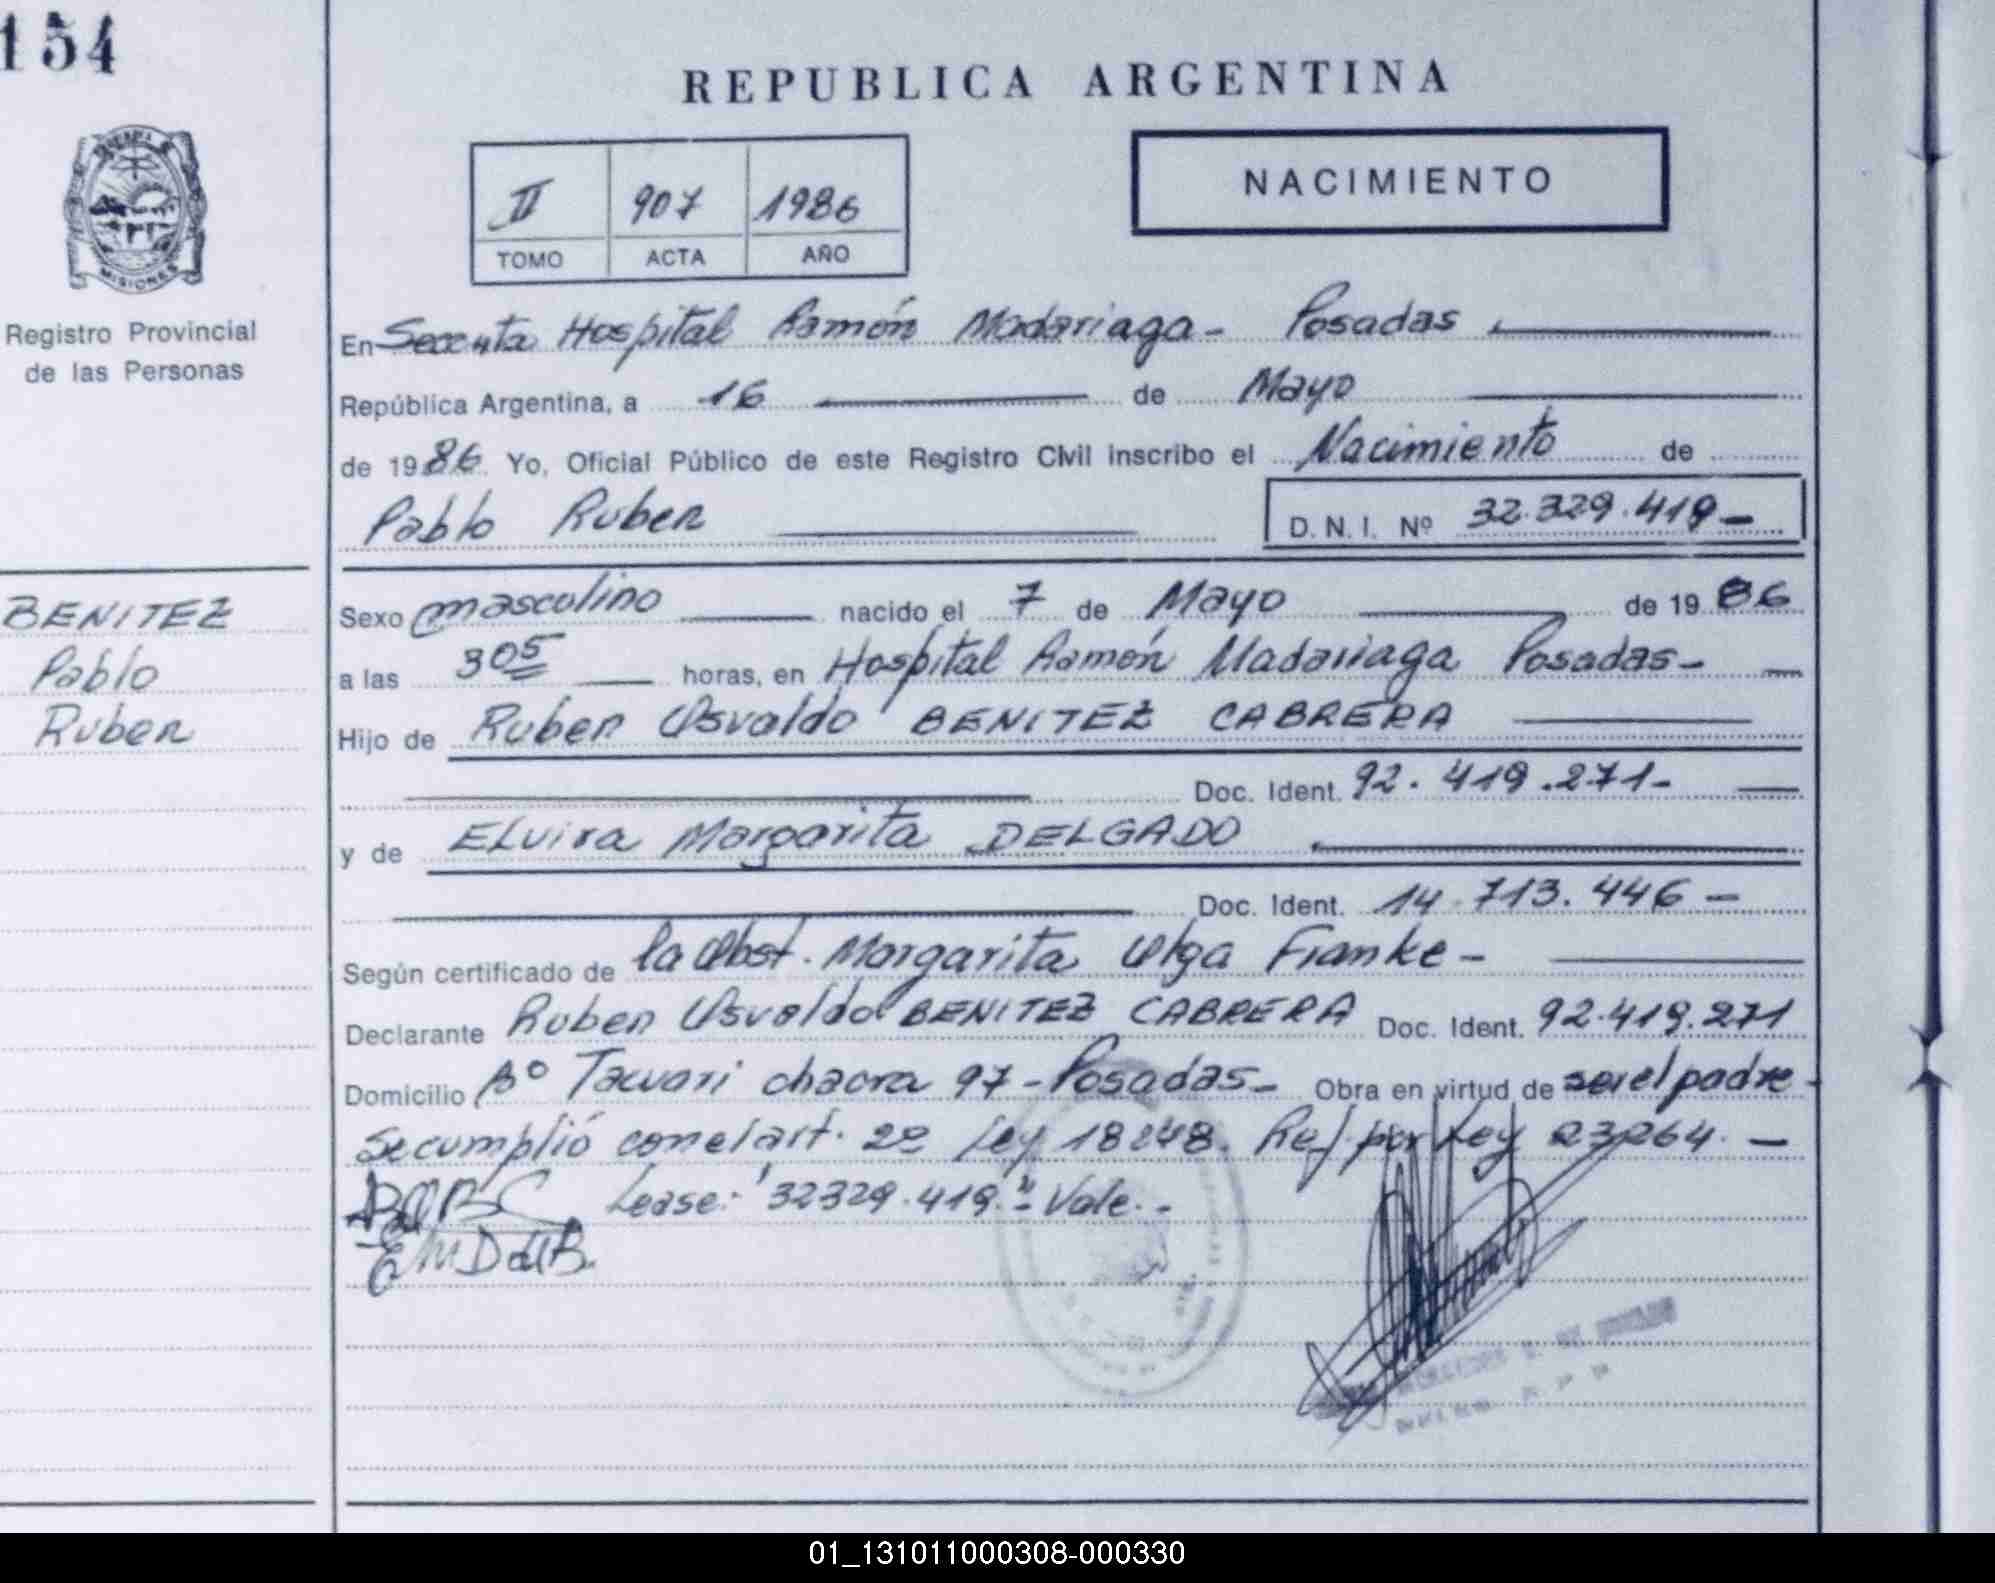 154
MISIONES
Registro Provincial
de las Personas
BENITEZ
Pablo
Ruben
REPUBLICA ARGENTINA
II 907 1986
TOMO ACTA AÑO
NACIMIENTO
En Hospital Ramón Madariaga - Posadas
República Argentina, a 16 de Mayo
de 1986 Yo, Oficial Público de este Registro Civil inscribo el Nacimiento de
Pablo Ruben D. N. I. Nº 32.329.419-
Sexo masculino nacido el 7 de Mayo de 1986
a las 3 05 horas, en Hospital Ramón Madariaga Posadas-
Hijo de Ruben Osvaldo BENITEZ CABRERA
Doc. Ident. 92.419.271-
y de ELvira Margarita DELGADO
Doc. Ident. 14.713.446-
Según certificado de la Obst. Margarita Olga Franke-
Declarante Ruben Osvaldo BENITEZ CABRERA Doc. Ident. 92.419.271
Domicilio Bº Tacuari chacra 97-Posadas- Obra en virtud de ser el padre-
Se cumplió con el art. 2º Ley 18248. Ref. por Ley 23264. -
Lease: "32329.419." Vale.-
01_131011000308-000330